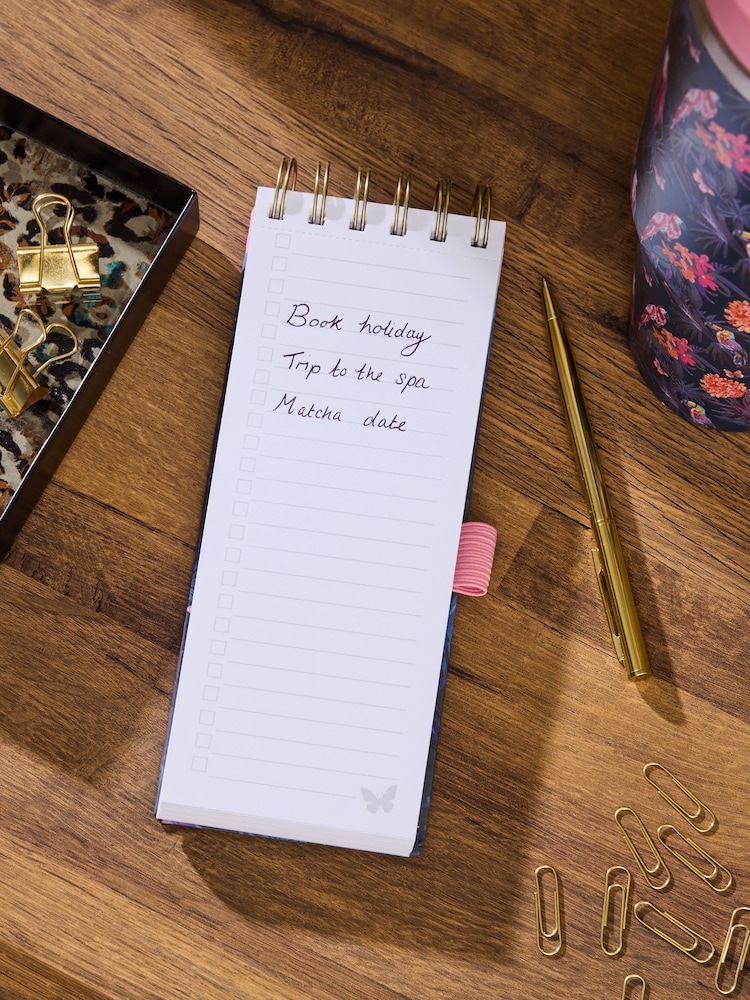 Book holiday
Trip to the spa
Matcha date